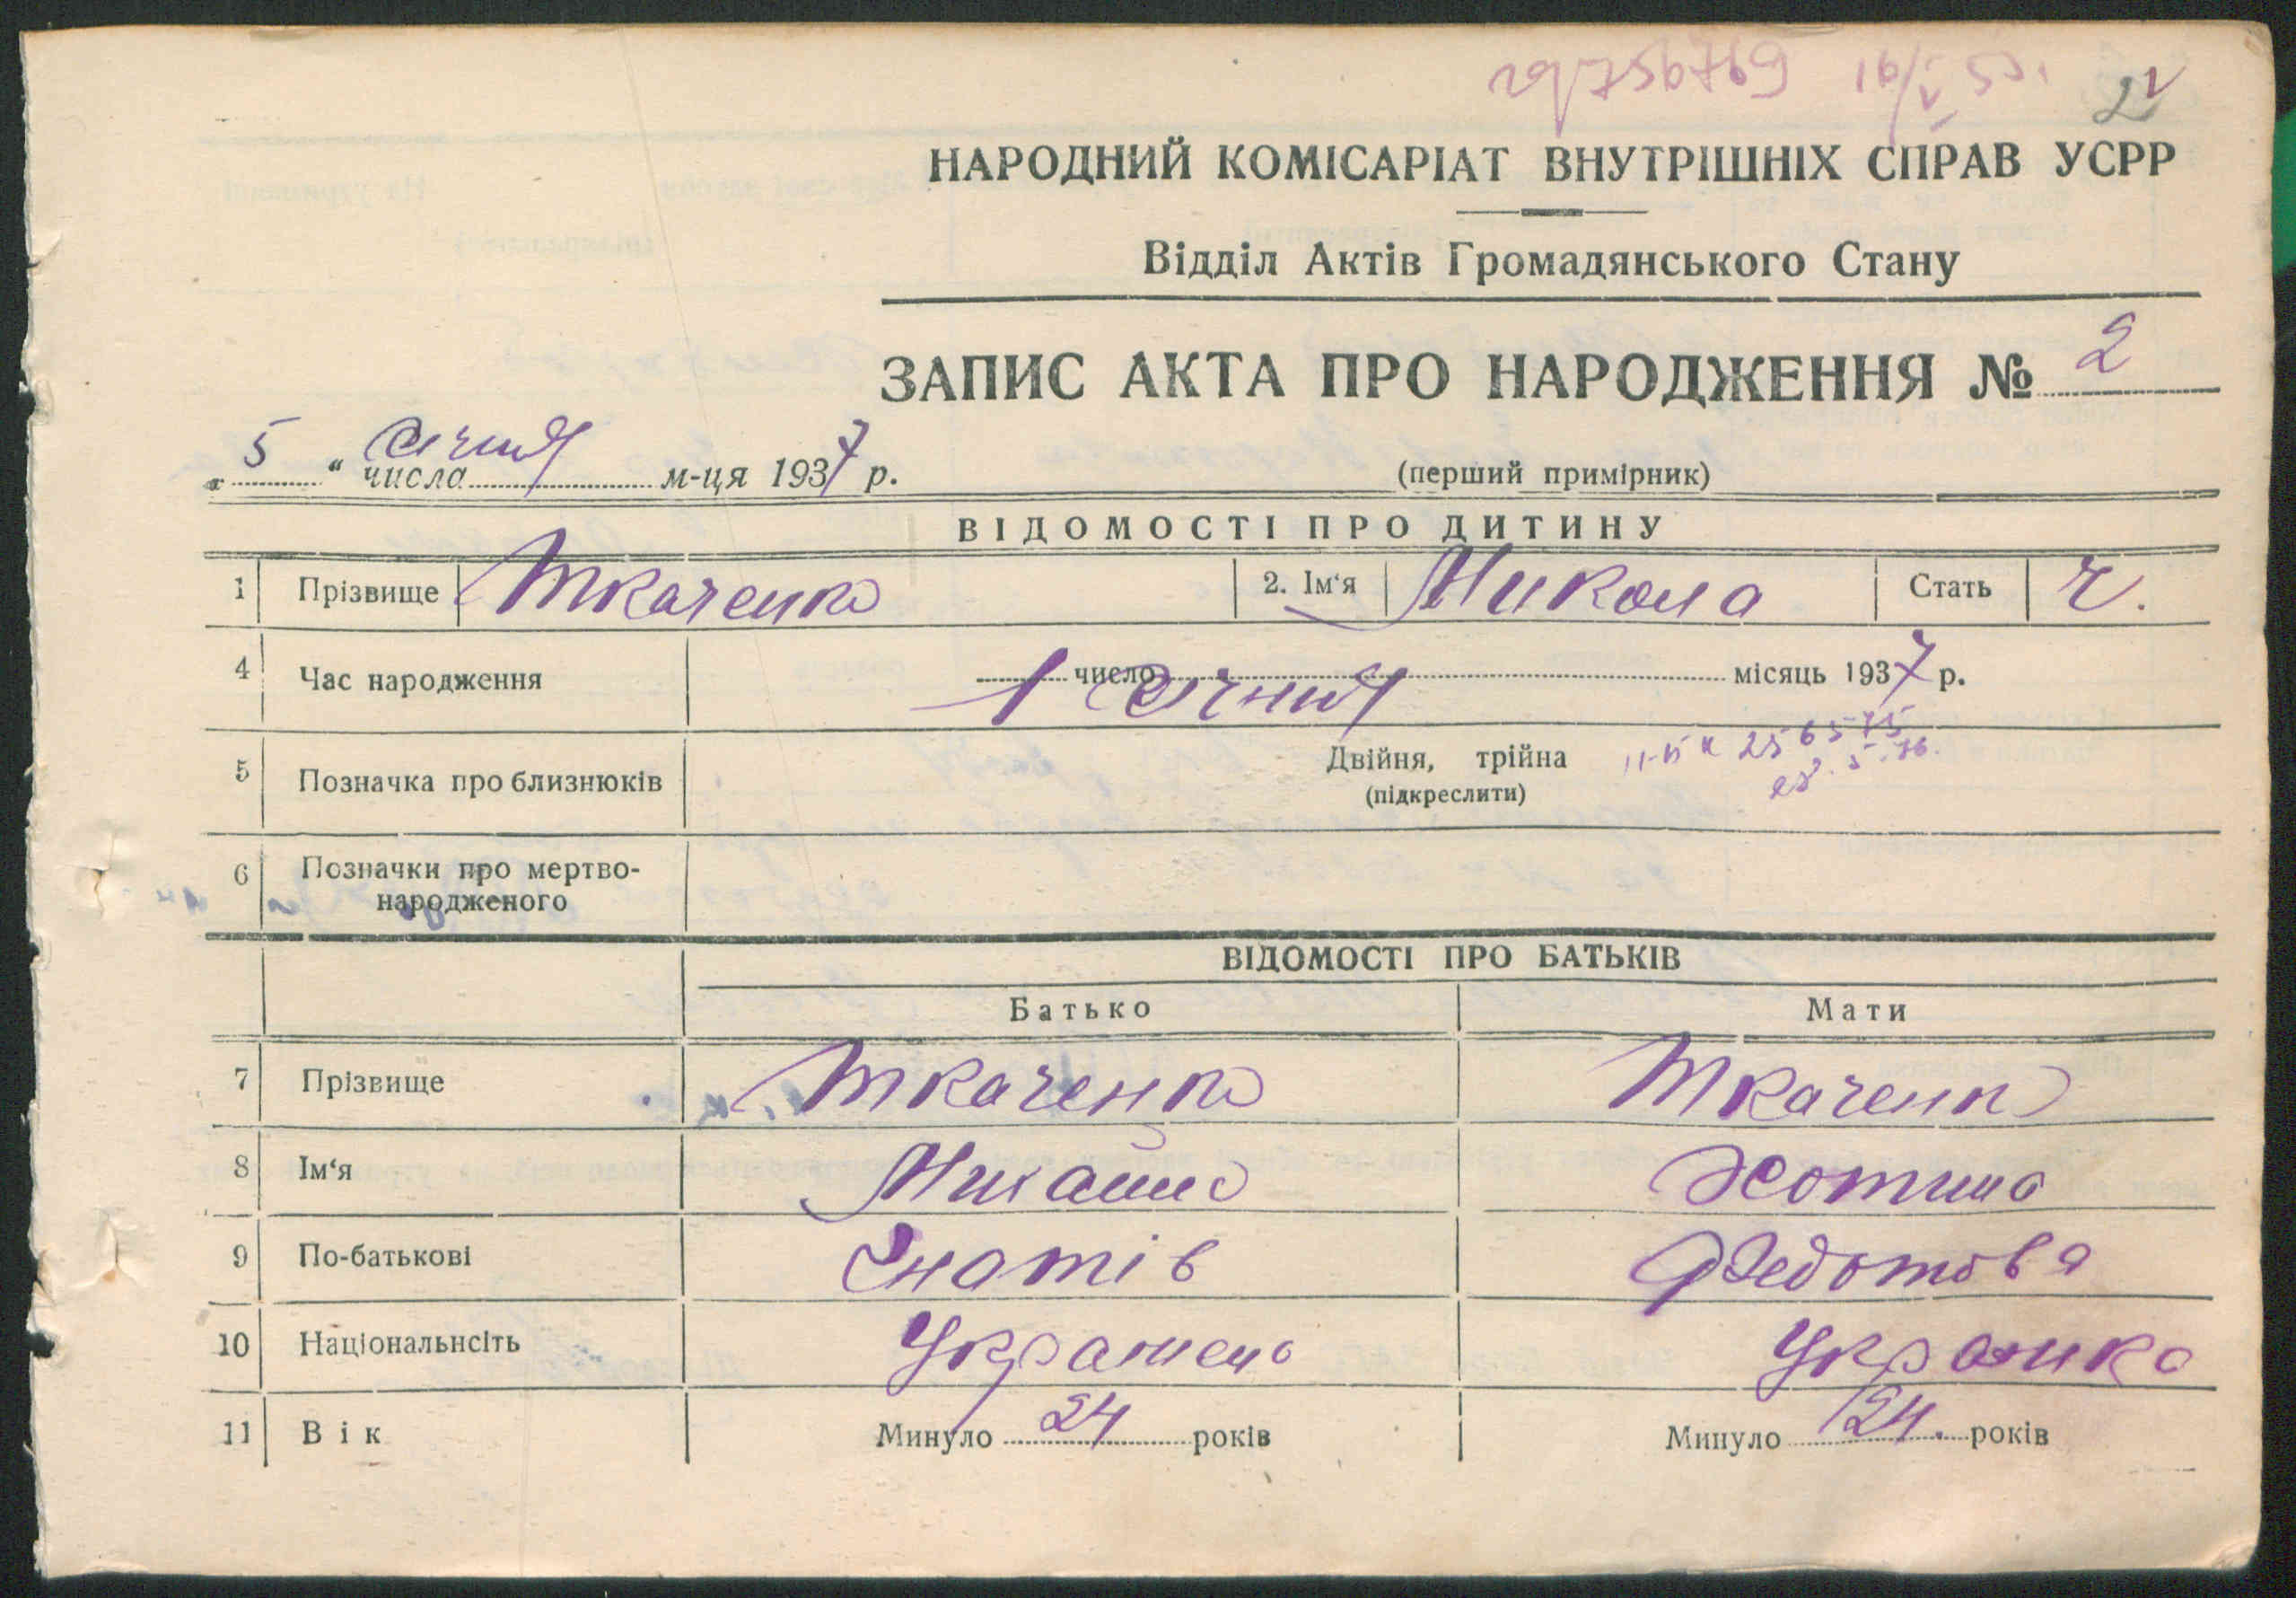 2
НАРОДНИЙ КОМІСАРІАТ ВНУТРІШНІХ СПРАВ УСРР
Відділ Актів Громадянського Стану
ЗАПИС АКТА ПРО НАРОДЖЕННЯ № 2
„ 5 “ числа січня м-ця 1937 р.
(перший примірник)
ВІДОМОСТІ ПРО ДИТИНУ
1 Прізвище Ткаченко 2. Ім‘я Микола Стать ч.
4 Час народження 1 число січня місяць 1937 р.
5 Позначка про близнюків Двійня, трійна
(підкреслити)
6 Позначки про мертво-
народженого
ВІДОМОСТІ ПРО БАТЬКІВ
Батько Мати
7 Прізвище Ткаченко Ткаченко
8 Ім‘я Михайло Хотина
9 По-батькові Гнатів Федотова
10 Національнсіть Українець Українка
11 Вік Минуло 24 років Минуло 24. років